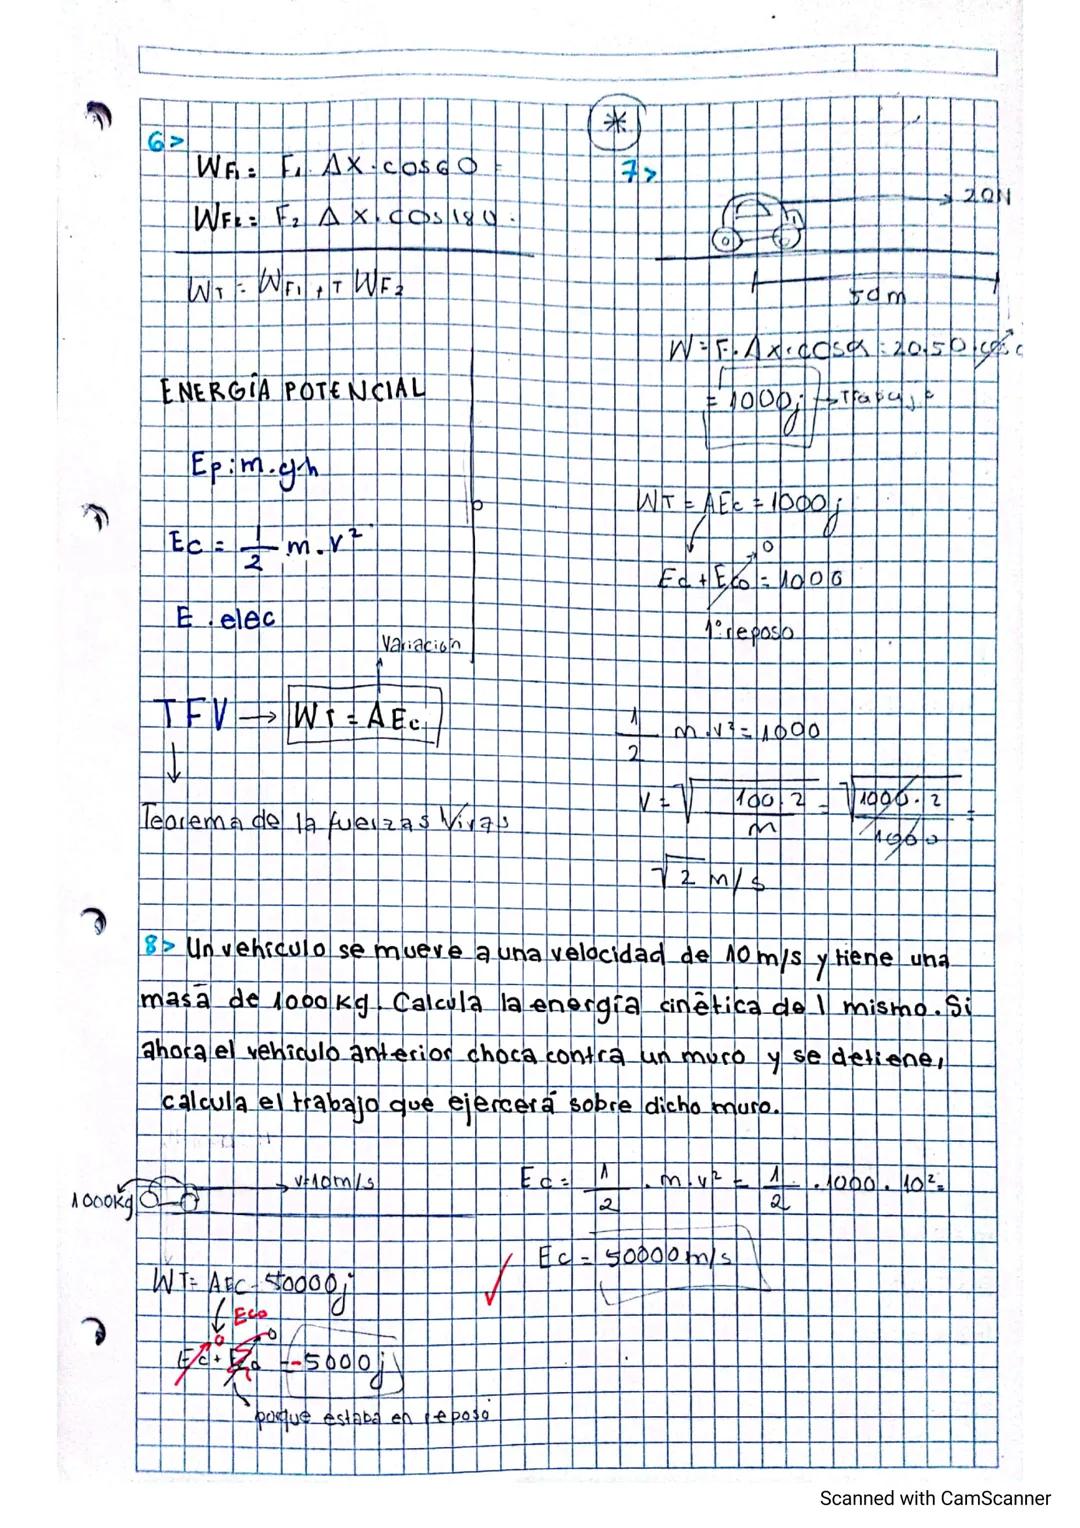 6>
WF₁ = F₁. ΔX.cos60 =
WF₂ = F₂ ΔX.cos180.
WT = WF₁ + T WF₂
ENERGÍA POTENCIAL
Ep: m.g.h
Ec = 1/2 m.v²
E. elec
Variación
TFV → WT = ΔEc
Teorema de la fuerzas Vivas
*
7>
20N
50m
W = F.Δx.cosα = 20.50.cos 0
= 1000j → Trabajo
WT = ΔEc = 1000j
0
Ec + Eco = 1000
1º reposo
1/2 m.v² = 1000
V = √100.2/m = √1000.2/1000 =
√2 m/s
8> Un vehículo se mueve a una velocidad de 10m/s y tiene una
masa de 1000kg. Calcula la energía cinética del mismo. Si
ahora el vehículo anterior choca contra un muro y se detiene,
calcula el trabajo que ejercerá sobre dicho muro.
1000kg
v=10m/s
Ec = 1/2 . m.v² = 1/2 .1000.10² =
Ec = 50000 m/s
WT = ΔEC = 50000j
Eco
0 0
Ec + Eco = -5000j
poque estaba en reposo
Scanned with CamScanner